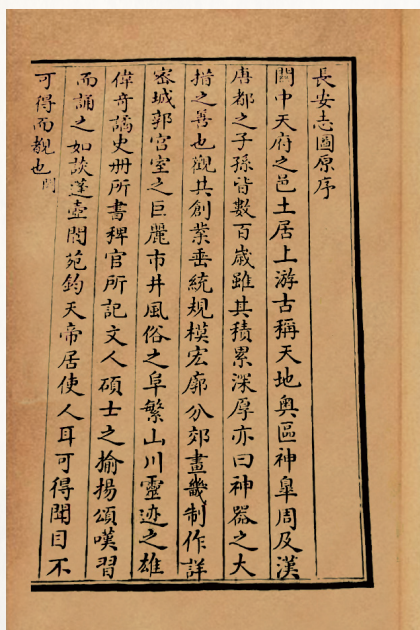 長安志圖原序
關中天府之邑土居上游古稱天地奥區神皐周及漢
唐都之子孫皆數百歳雖其積累深厚亦曰神器之大
措之善也觀其創業垂統規模宏廓分郊畫畿制作詳
密城郭宫室之巨麗市井風俗之阜繁山川靈迹之雄
偉竒譎史册所書稗官所記文人碩士之揄揚頌嘆習
而誦之如談蓬壺閬苑鈞天帝居使人耳可得聞目不
可得而覩也